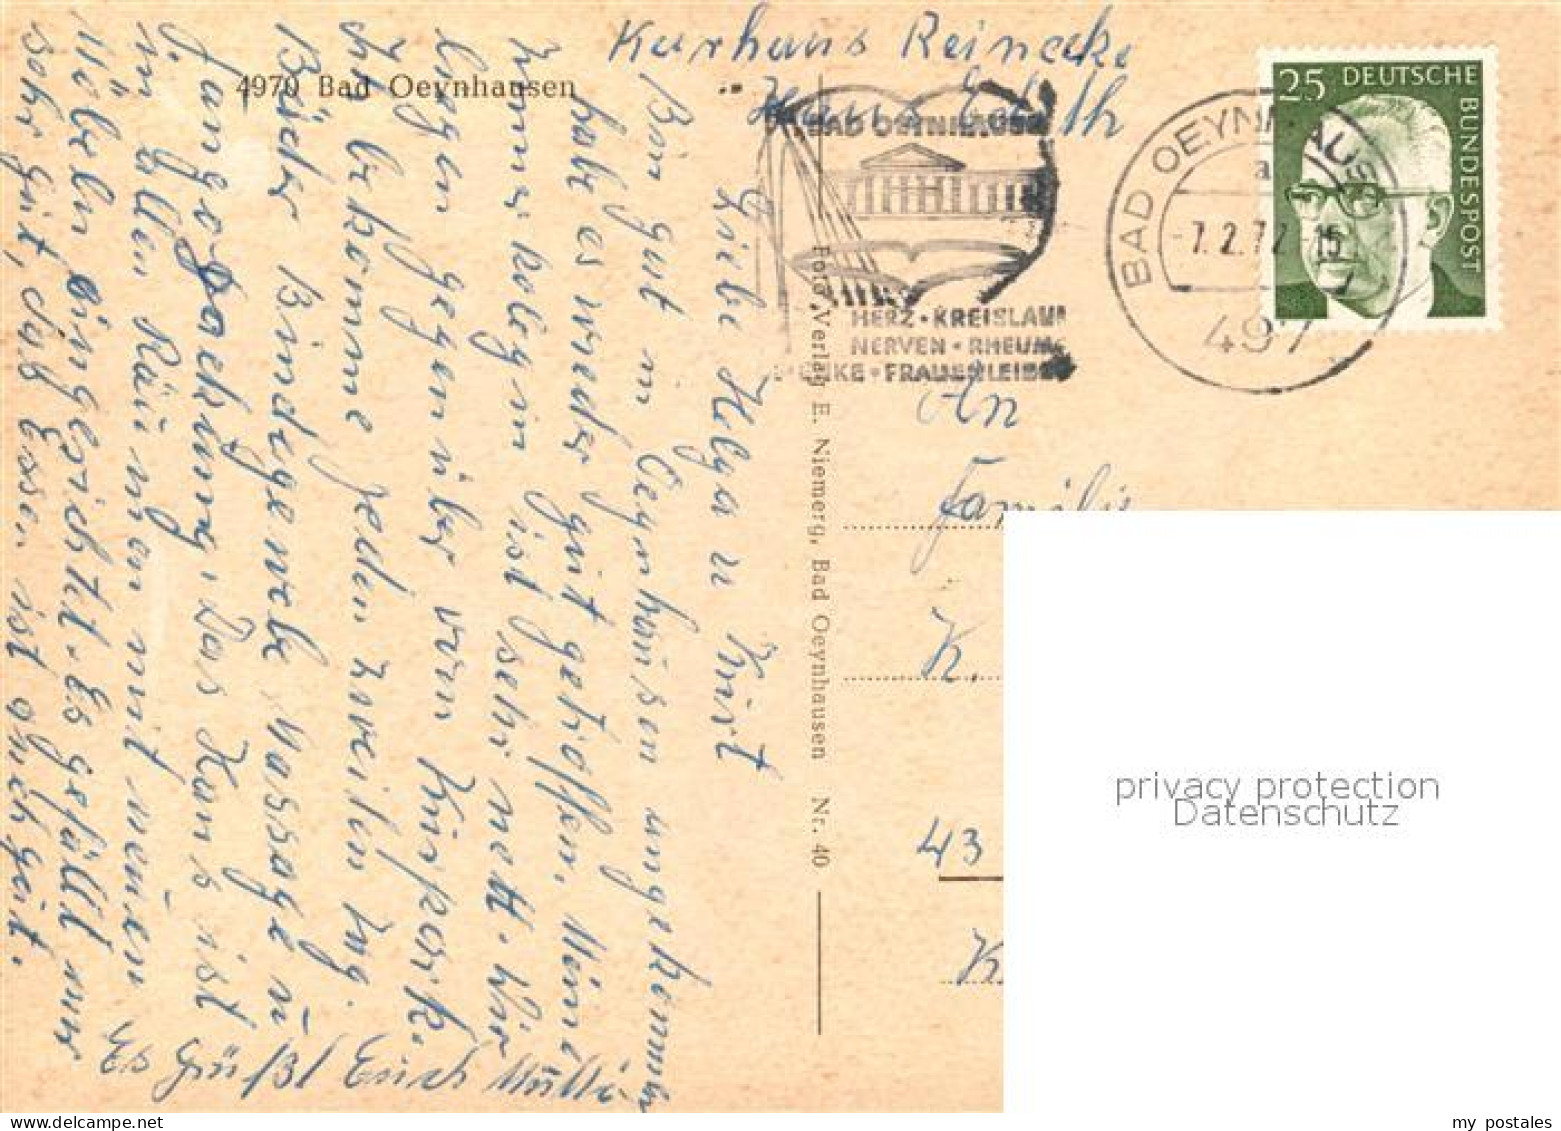 Kurhaus Reinecke
Haus Edith
4970 Bad Oeynhausen
BAD OEYNHAUSEN
HERZ • KREISLAUF
NERVEN • RHEUMA
FRAUENLEIDEN
BAD OEYNHAUSEN
a
-7.2.72 15
497
25 DEUTSCHE
BUNDESPOST
Liebe Helga u Kurt
Bin gut in Oeynhausen angekommen
habe es wieder gut getroffen. Meine
Zimmerkolegin ist sehr nett. Wir
liegen gegenüber vom Kurpark.
Ich bekomme jeden zweiten Tag
Bäder Bindegewebe Massage u
Fangopackung. Das Haus ist
in allen Räumen mit neuen
Möbeln eingerichtet. Es gefällt mir
sehr gut, das Essen ist auch gut.
Es grüßt Euch Mutti
Foto-Verlag E. Niemerg, Bad Oeynhausen Nr. 40
An
Familie
K.
43
K
privacy protection
Datenschutz
my postales